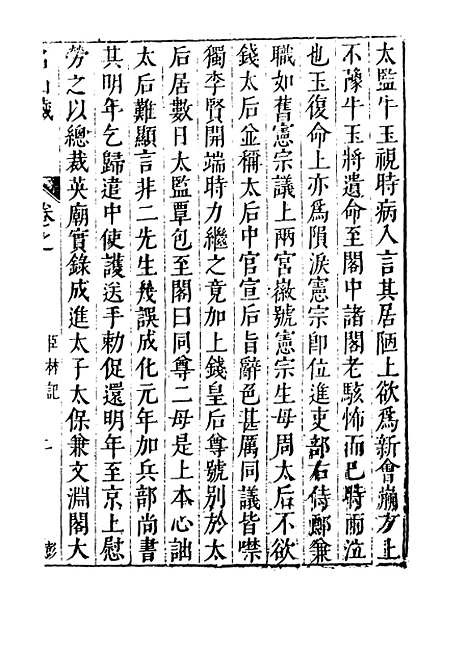 太監牛玉視時病入言其居陋上欲爲新會彌方上
不豫牛玉將遺命至閣中諸閣老駭怖而已時雨泣
也玉復命上亦爲隕淚憲宗卽位進吏部右侍郞兼
職如舊憲宗議上兩宮徽號憲宗生母周太后不欲
錢太后並稱太后中官宣后旨辭色甚厲同議皆噤
獨李賢開端時力繼之竟加上錢皇后尊號別於太
后居數日太監覃包至閣曰同尊二母是上本心詘
太后難顯言非二先生幾誤成化元年加兵部尚書
其明年乞歸遣中使護送手勅促還明年至京上慰
勞之以總裁英廟實錄成進太子太保兼文淵閣大
名山藏 卷之 臣林記 二 彭